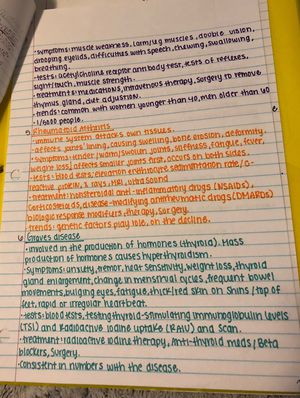 -symptoms: muscle weakness, (arm/leg muscles), double vision,
drooping eyelids, difficulties with speech, chewing, swallowing,
breathing.
-tests: acetylcholine receptor antibody test, tests of reflexes,
sight/touch, muscle strength.
-treatments: medications, intravenous therapy, surgery to remove
thymus gland, diet adjustion.
-trends: common with women younger than 40, men older than 60
-1/5000 people.
5) Rheumatoid Arthritis
-immune system attacks own tissues.
-affects joints' lining, causing swelling, bone erosion, deformity.
-symptoms: tender/warm/swollen joints, stiffness, fatigue, fever,
weight loss, affects smaller joints first, occurs on both sides.
-tests: blood tests, elevation erythrocyte sedimentation rate/C-
reactive protein, x rays, MRI, ultrasound
-treatment: nonsteroidal anti-inflammatory drugs (NSAIDs),
Corticosteroids, disease-modifying antirheumatic drugs (DMARDs)
biologic response modifiers, therapy, surgery.
-trends: genetic factors play role, on the decline.
6) Graves disease
-involved in the production of hormones (thyroid). Mass
production of hormones causes hyperthyroidism.
-symptoms: anxiety, tremor, heat sensitivity, weight loss, thyroid
gland enlargement, change in menstrual cycles, frequent bowel
movements, bulging eyes, fatigue, thick/red skin on shins/top of
feet, rapid or irregular heartbeat.
-tests: blood tests, testing thyroid-stimulating immunoglobulin levels
(TSI) and Radioactive iodine uptake (RAIU) and scan.
-treatment: radioactive iodine therapy, anti-thyroid meds/Beta
blockers, surgery.
-consistent in numbers with the disease.